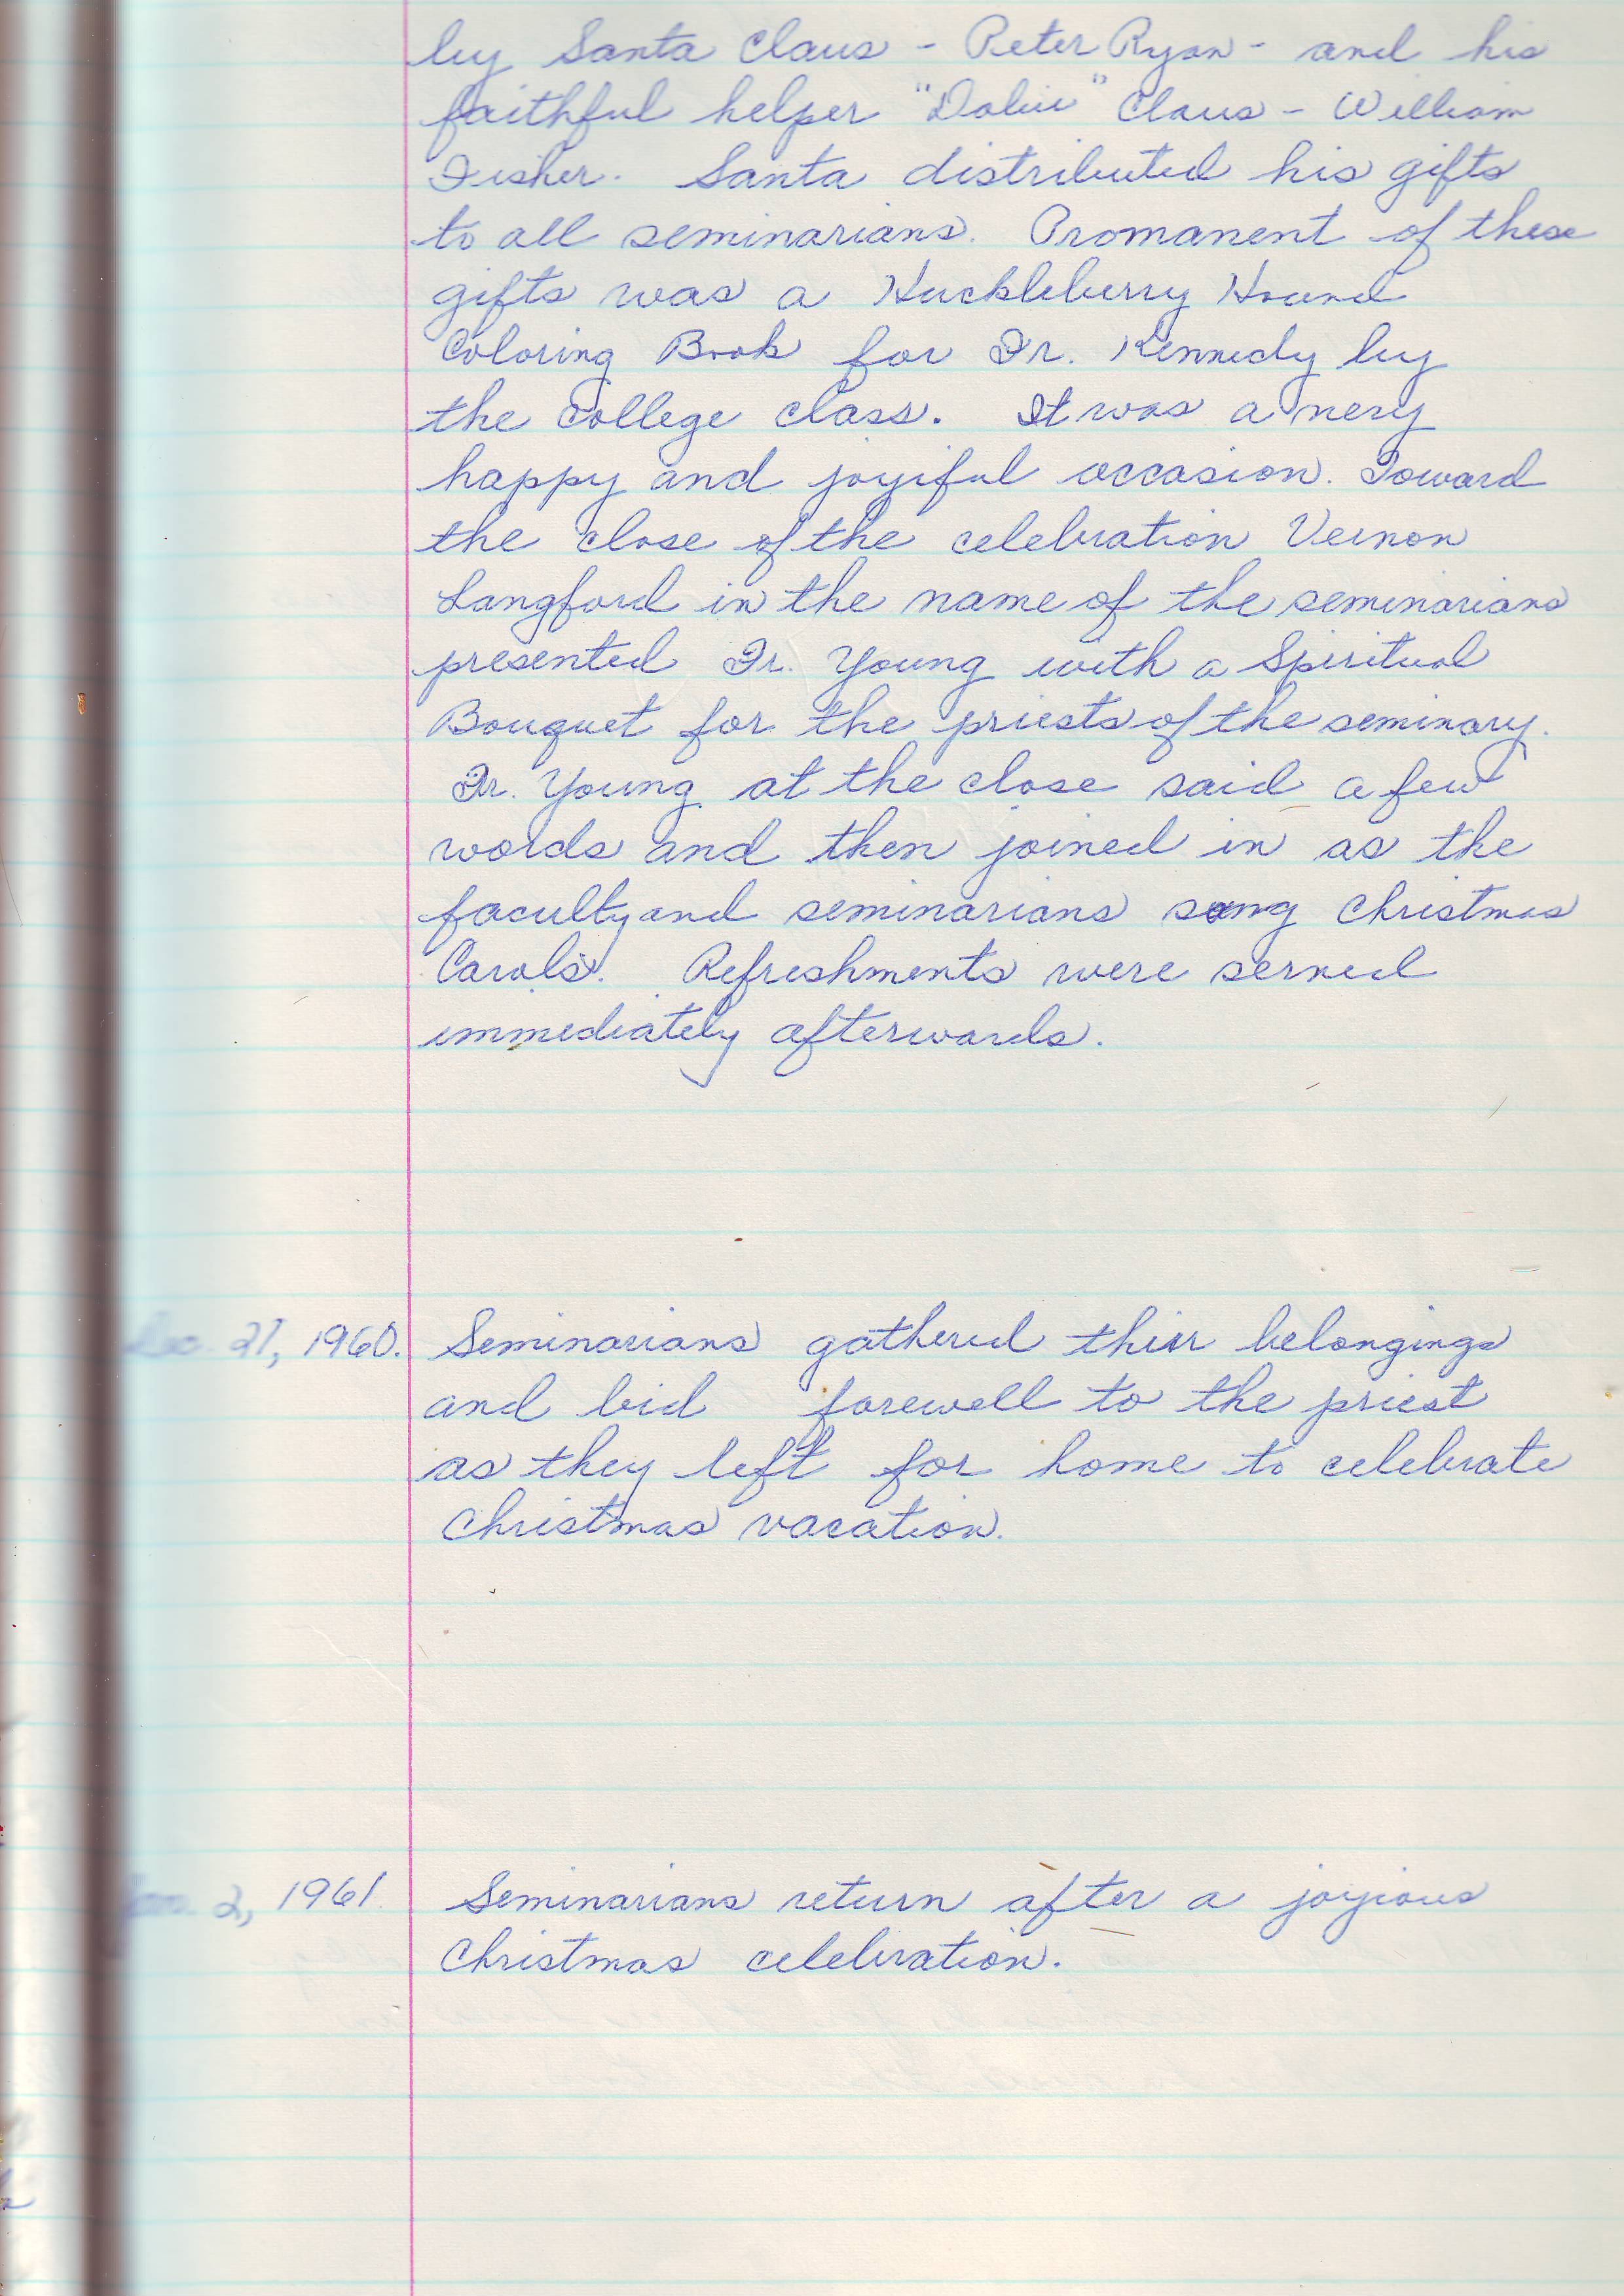 by Santa Claus - Peter Ryan - and his
faithful helper " " Claus - William
Fisher. Santa distributed his gifts
to all seminarians. Promanent of these
gifts was a Huckleberry Hound
Coloring Book for Fr. Kennedy by
the College class. It was a very
happy and joyiful occasion. Toward
the close of the celebration Vernon
Langford in the name of the seminarians
presented Fr. Young with a Spiritual
Bouquet for the priests of the seminary.
Fr. Young at the close said a few
words and then joined in as the
faculty and seminarians sang Christmas
Carols. Refreshments were served
immediately afterwards.
Dec. 21, 1960. Seminarians gathered thier belongings
and bid farewell to the priest
as they left for home to celebrate
Christmas vacation.
Jan. 2, 1961. Seminarians return after a joyious
Christmas celebration.